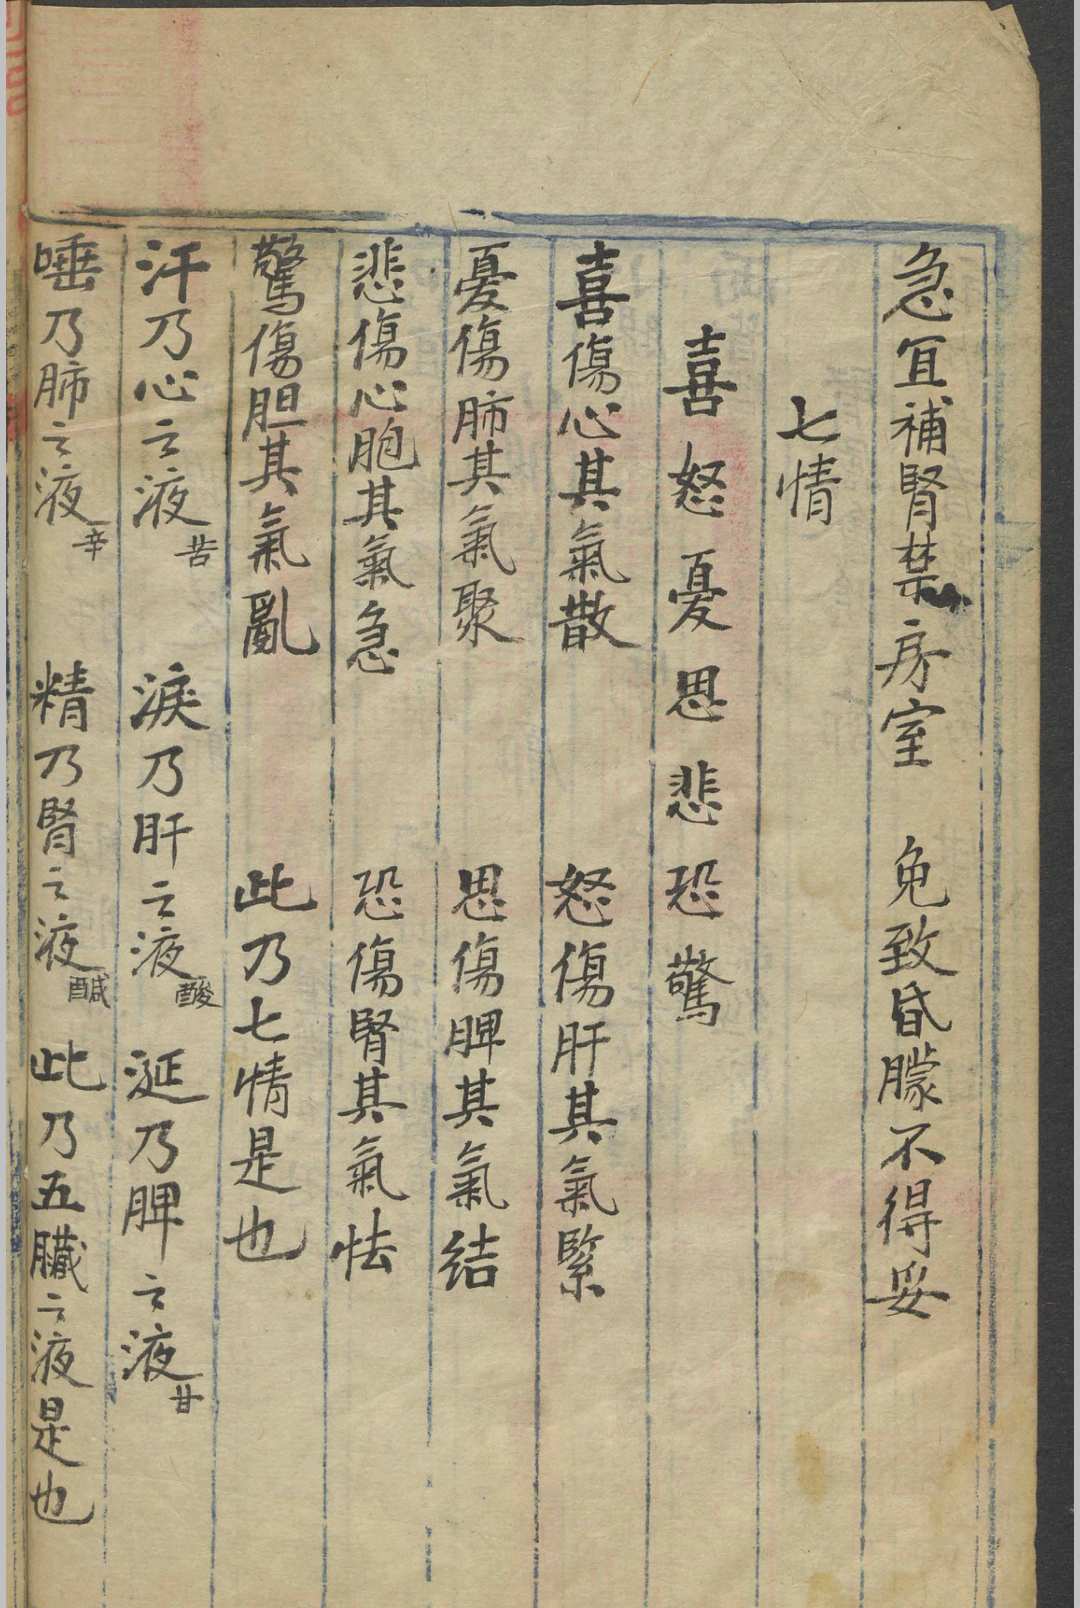 急宜補腎禁房室　免致昏朦不得妥
七情
喜怒憂思悲恐驚
喜傷心其氣散　怒傷肝其氣緊
憂傷肺其氣聚　思傷脾其氣结
悲傷心胞其氣急　恐傷腎其氣怯
驚傷胆其氣亂　此乃七情是也
汗乃心之液苦　淚乃肝之液酸　涎乃脾之液甘
唾乃肺之液辛　精乃腎之液醎　此乃五臟之液是也